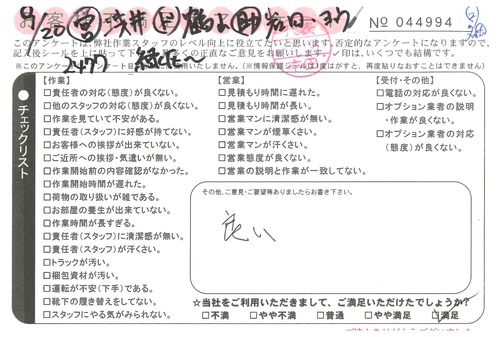 № 044994
9/20
このアンケートは、弊社作業スタッフのレベル向上に役立てたいと思います。否定的なアンケートになりますので、
※このアンケート
【作業】
□責任者の対応(態度)が良くない。
□他のスタッフの対応(態度)が良くない。
□作業を見ていて不安がある。
□責任者(スタッフ)に好感が持てない。
□お客様への挨拶が出来ていない。
□ご近所への挨拶・気遣いが無い。
□作業開始前の内容確認がなかった。
□作業開始時間が遅れた。
□荷物の取り扱いが雑である。
□お部屋の養生が出来ていない。
□作業時間が長すぎる。
□責任者(スタッフ)に清潔感が無い。
□責任者(スタッフ)が汗くさい。
□トラックが汚い。
□梱包資材が汚い。
□運転が不安(下手)である。
□靴下の履き替えをしてない。
□スタッフにやる気がみられない。
【営業】
□見積もり時間に遅れた。
□見積もり時間が長い。
□営業マンに清潔感が無い。
□営業マンが煙草くさい。
□営業マンが汗くさい。
□営業態度が良くない。
□営業の説明と作業が一致してない。
【受付・その他】
□電話の対応が良くない。
□オプション業者の説明
・作業が良くない。
□オプション業者の対応
(態度)が良くない。
チェックリスト
その他、ご意見・ご要望等ありましたらお書き下さい。
良い
☆当社をご利用いただきまして、ご満足いただけたでしょうか?
□不満 □やや不満 □普通 □やや満足 □満足